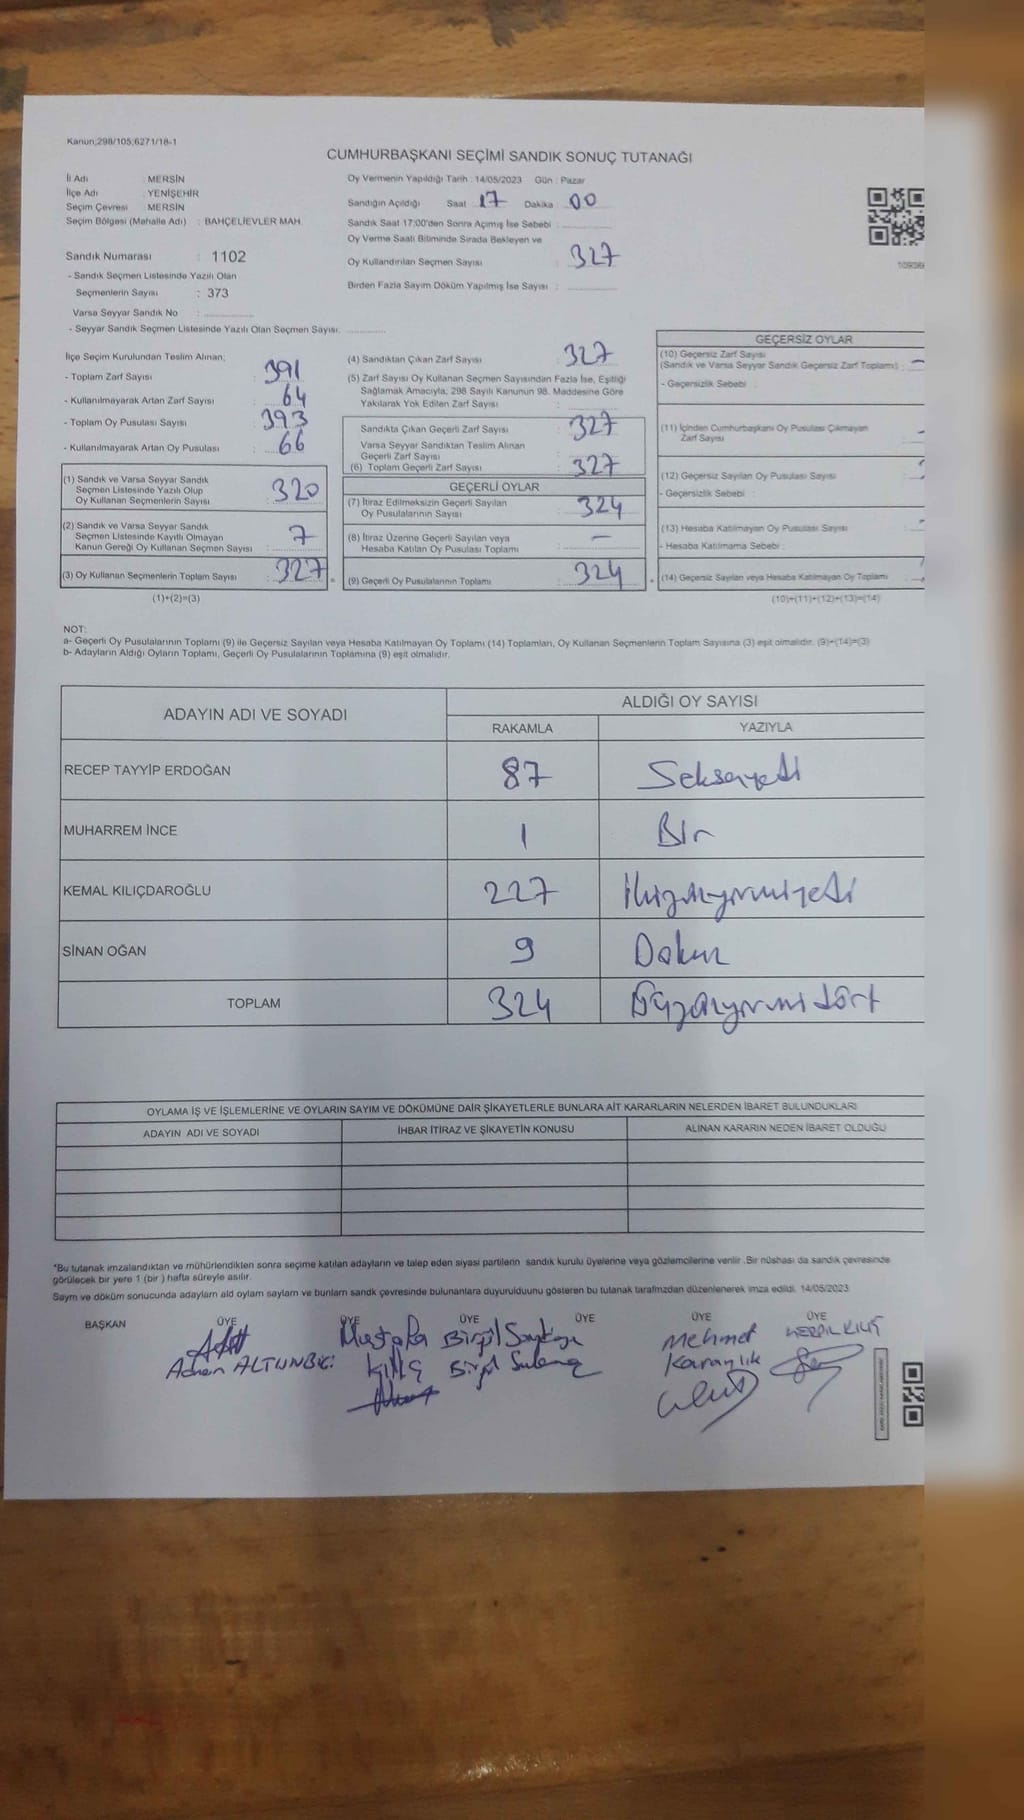 Kanun;298/105;6271/18-1
CUMHURBAŞKANI SEÇİMİ SANDIK SONUÇ TUTANAĞI
İl Adı : MERSİN
İlçe Adı : YENİŞEHİR
Seçim Çevresi : MERSİN
Seçim Bölgesi (Mahalle Adı) : BAHÇELİEVLER MAH.
Sandık Numarası : 1102
- Sandık Seçmen Listesinde Yazılı Olan
Seçmenlerin Sayısı : 373
Varsa Seyyar Sandık No :
- Seyyar Sandık Seçmen Listesinde Yazılı Olan Seçmen Sayısı.
Oy Vermenin Yapıldığı Tarih : 14/05/2023 Gün : Pazar
Sandığın Açıldığı Saat 17 Dakika 00
Sandık Saat 17:00'den Sonra Açımış İse Sebebi :
Oy Verme Saati Bitiminde Sırada Bekleyen ve
Oy Kullandırılan Seçmen Sayısı : 327
Birden Fazla Sayım Döküm Yapılmış İse Sayısı :
İlçe Seçim Kurulundan Teslim Alınan;
- Toplam Zarf Sayısı : 391
- Kullanılmayarak Artan Zarf Sayısı : 64
- Toplam Oy Pusulası Sayısı : 393
- Kullanılmayarak Artan Oy Pusulası : 66
(1) Sandık ve Varsa Seyyar Sandık
Seçmen Listesinde Yazılı Olup
Oy Kullanan Seçmenlerin Sayısı : 320
(2) Sandık ve Varsa Seyyar Sandık
Seçmen Listesinde Kayıtlı Olmayan
Kanun Gereği Oy Kullanan Seçmen Sayısı : 7
(3) Oy Kullanan Seçmenlerin Toplam Sayısı : 327
(1)+(2)=(3)
(4) Sandıktan Çıkan Zarf Sayısı : 327
(5) Zarf Sayısı Oy Kullanan Seçmen Sayısından Fazla İse, Eşitliği
Sağlamak Amacıyla; 298 Sayılı Kanunun 98. Maddesine Göre
Yakılarak Yok Edilen Zarf Sayısı :
Sandıkta Çıkan Geçerli Zarf Sayısı : 327
Varsa Seyyar Sandıktan Teslim Alınan
Geçerli Zarf Sayısı :
(6) Toplam Geçerli Zarf Sayısı : 327
GEÇERLİ OYLAR
(7) İtiraz Edilmeksizin Geçerli Sayılan
Oy Pusulalarının Sayısı : 324
(8) İtiraz Üzerine Geçerli Sayılan veya
Hesaba Katılan Oy Pusulası Toplamı : —
(9) Geçerli Oy Pusulalarının Toplamı : 324
GEÇERSİZ OYLAR
(10) Geçersiz Zarf Sayısı
(Sandık ve Varsa Seyyar Sandık Geçersiz Zarf Toplamı) :
- Geçersizlik Sebebi :
(11) İçinden Cumhurbaşkanı Oy Pusulası Çıkmayan
Zarf Sayısı
(12) Geçersiz Sayılan Oy Pusulası Sayısı
- Geçersizlik Sebebi :
(13) Hesaba Katılmayan Oy Pusulası Sayısı
- Hesaba Katılmama Sebebi :
(14) Geçersiz Sayılan veya Hesaba Katılmayan Oy Toplamı :
(10)+(11)+(12)+(13)=(14)
NOT:
a- Geçerli Oy Pusulalarının Toplamı (9) ile Geçersiz Sayılan veya Hesaba Katılmayan Oy Toplamı (14) Toplamları, Oy Kullanan Seçmenlerin Toplam Sayısına (3) eşit olmalıdır. (9)+(14)=(3)
b- Adayların Aldığı Oyların Toplamı, Geçerli Oy Pusulalarının Toplamına (9) eşit olmalıdır.
ADAYIN ADI VE SOYADI ALDIĞI OY SAYISI
RAKAMLA YAZIYLA
RECEP TAYYİP ERDOĞAN 87 Seksenyedi
MUHARREM İNCE 1 Bir
KEMAL KILIÇDAROĞLU 227 İkiyüzyirmiyedi
SİNAN OĞAN 9 Dokuz
TOPLAM 324 Üçyüzyirmidört
OYLAMA İŞ VE İŞLEMLERİNE VE OYLARIN SAYIM VE DÖKÜMÜNE DAİR ŞİKAYETLERLE BUNLARA AİT KARARLARIN NELERDEN İBARET BULUNDUKLARI
ADAYIN ADI VE SOYADI İHBAR İTİRAZ VE ŞİKAYETİN KONUSU ALINAN KARARIN NEDEN İBARET OLDUĞU
*Bu tutanak imzalandıktan ve mühürlendikten sonra seçime katılan adayların ve talep eden siyasi partilerin sandık kurulu üyelerine veya gözlemcilerine verilir .Bir nüshası da sandık çevresinde
görülecek bir yere 1 (bir ) hafta süreyle asılır.
Sayım ve döküm sonucunda adayların ald oyların sayları ve bunların sandk çevresinde bulunanlara duyurulduunu gösteren bu tutanak tarafmzdan düzenlenerek imza edildi. 14/05/2023
BAŞKAN ÜYE ÜYE ÜYE ÜYE ÜYE ÜYE
Mustafa Birgül Mehmet
Kılıç Birgül Karanlık